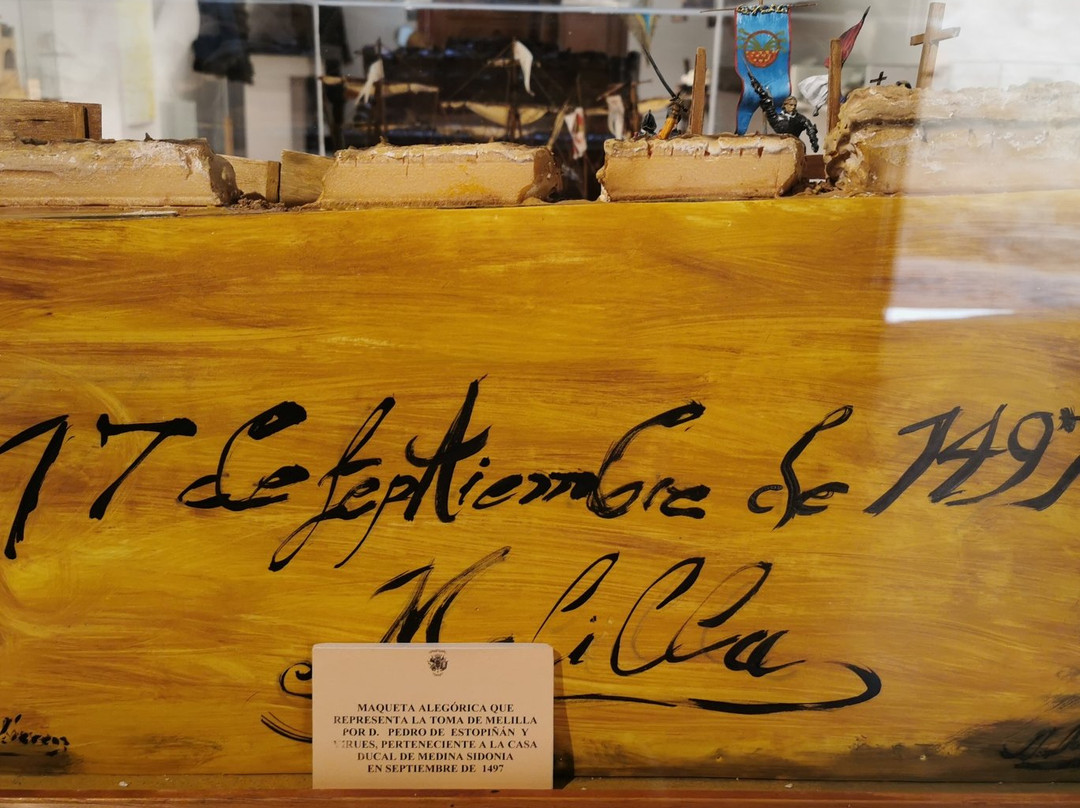 17 de Septtiembre de 1497
Melilla
MAQUETA ALEGÓRICA QUE
REPRESENTA LA TOMA DE MELILLA
POR D. PEDRO DE ESTOPIÑÁN Y
VIRUES, PERTENECIENTE A LA CASA
DUCAL DE MEDINA SIDONIA
EN SEPTIEMBRE DE 1497